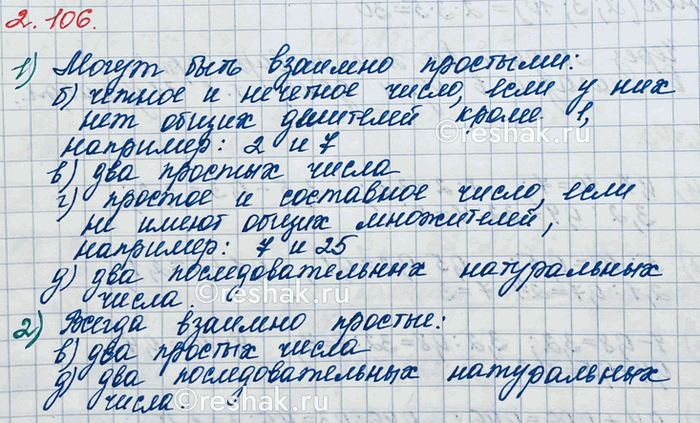 2.106.
1) Могут быть взаимно простыми:
б) четное и нечетное число, если у них
нет общих делителей кроме 1,
например: 2 и 7
в) два простых числа
г) простое и составное число, если
не имеют общих множителей,
например: 7 и 25
д) два последовательных натуральных
числа.
2) Всегда взаимно простые:
в) два простых числа
д) два последовательных натуральных
числа
©reshak.ru
©reshak.ru
©reshak.ru
©reshak.ru